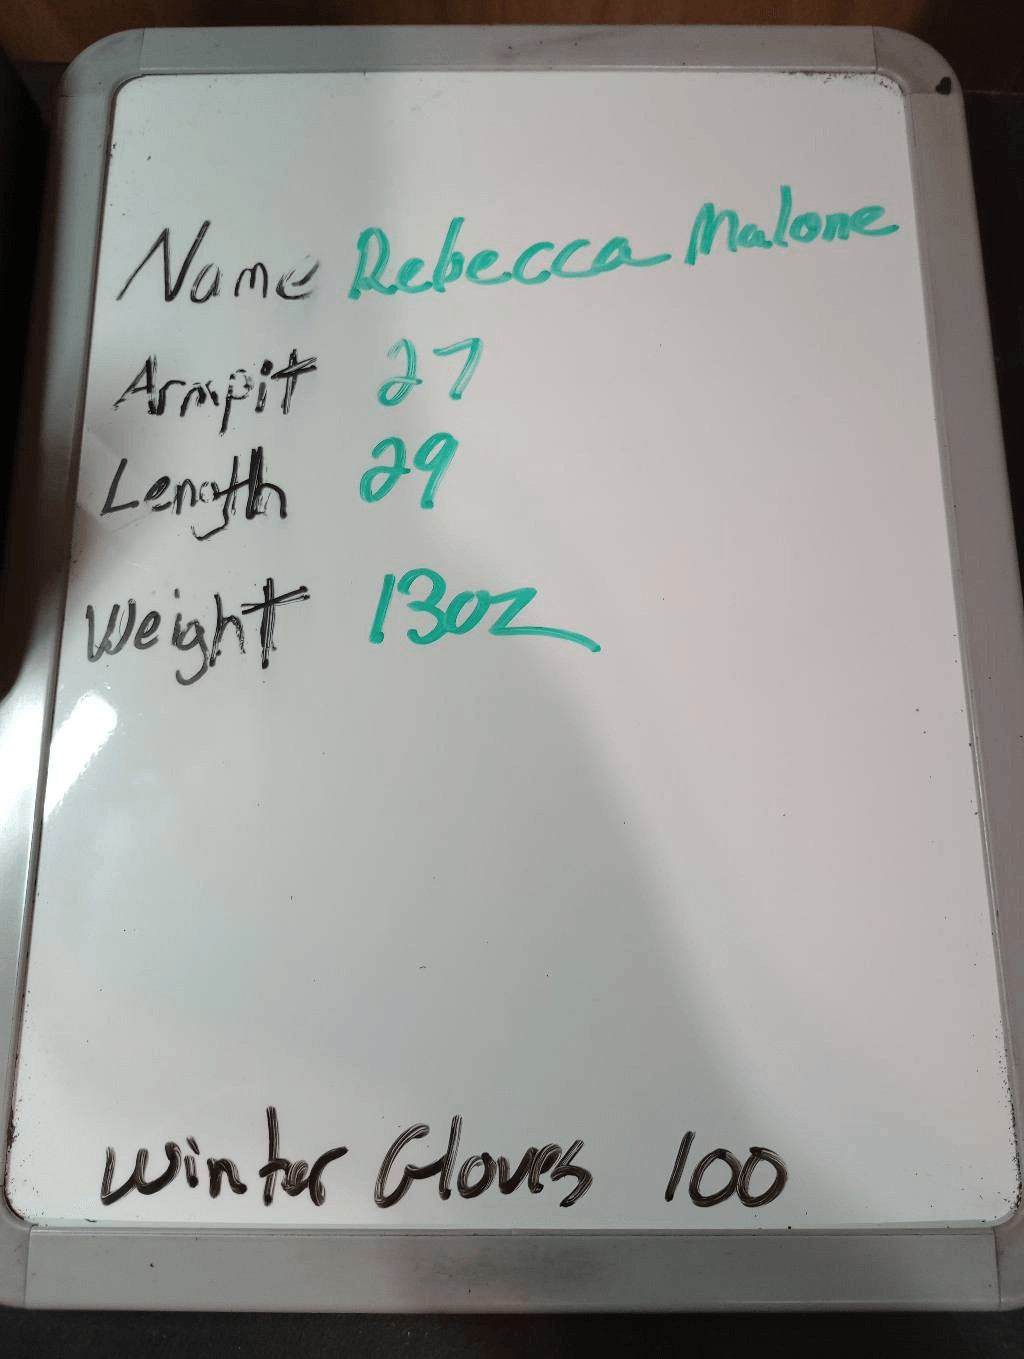 Name Rebecca Malone
Armpit 27
Length 29
Weight 13oz
Winter Gloves 100